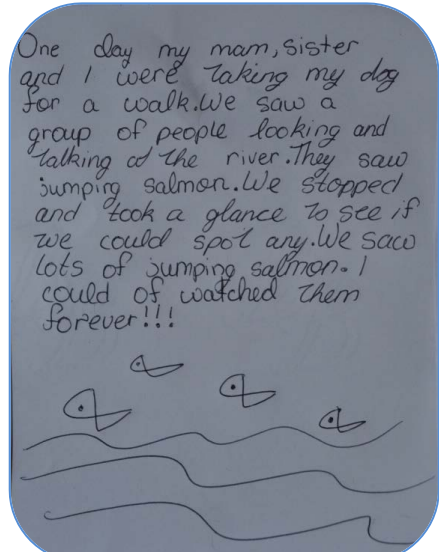 One day my mam, sister
and I were taking my dog
for a walk. We saw a
group of people looking and
talking at the river. They saw
jumping salmon. We stopped
and took a glance to see if
we could spot any. We saw
lots of jumping salmon. I
could of watched them
forever!!!